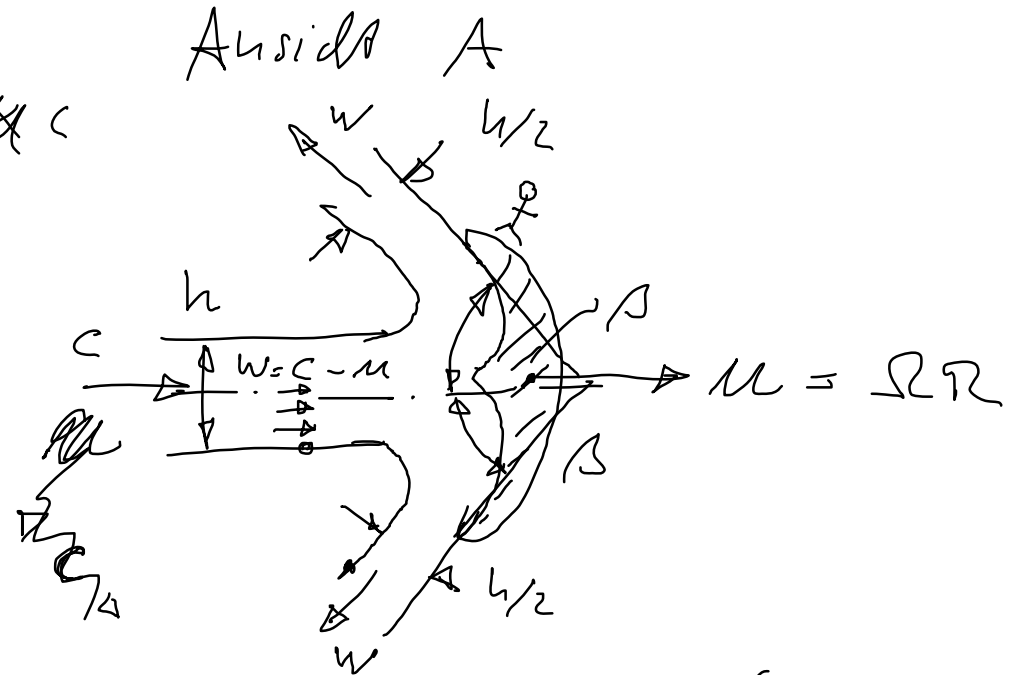 Ansicht A
c
w
h/2
h
β
c
w = c - u
u = ΩR
β
h/2
w